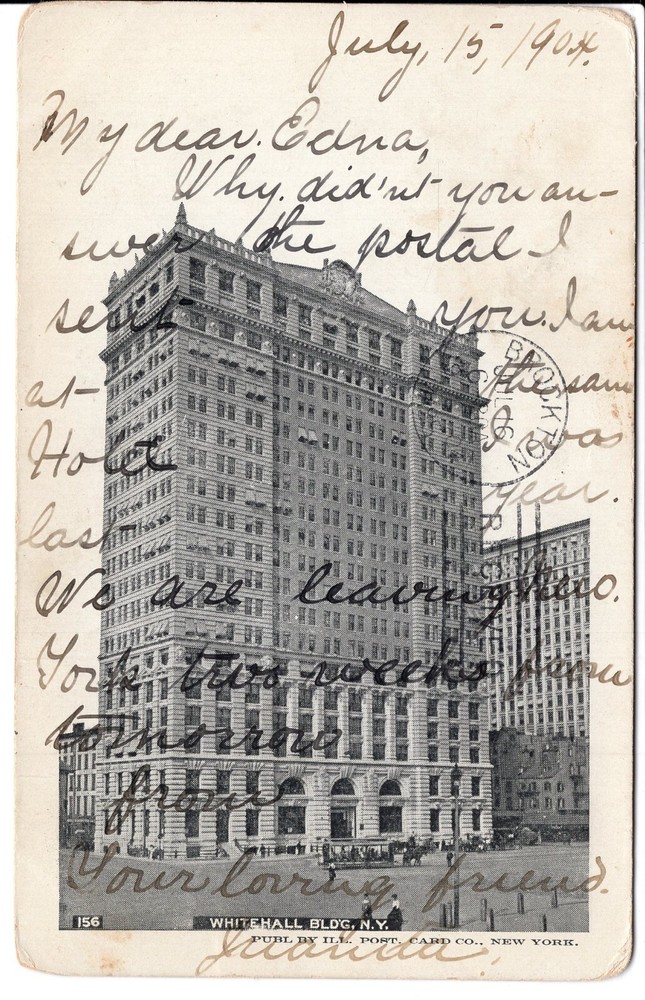 July, 15, 1904.
My dear Edna,
Why did'nt you an-
swer the postal I
sent you. I am
at the same
Hotel I was
last year.
We are leaving New.
York two weeks from
tomorrow
from
Your loving friend.
BROCKTON
156
WHITEHALL BLD'G, N.Y.
PUBL BY ILL. POST. CARD CO., NEW YORK.